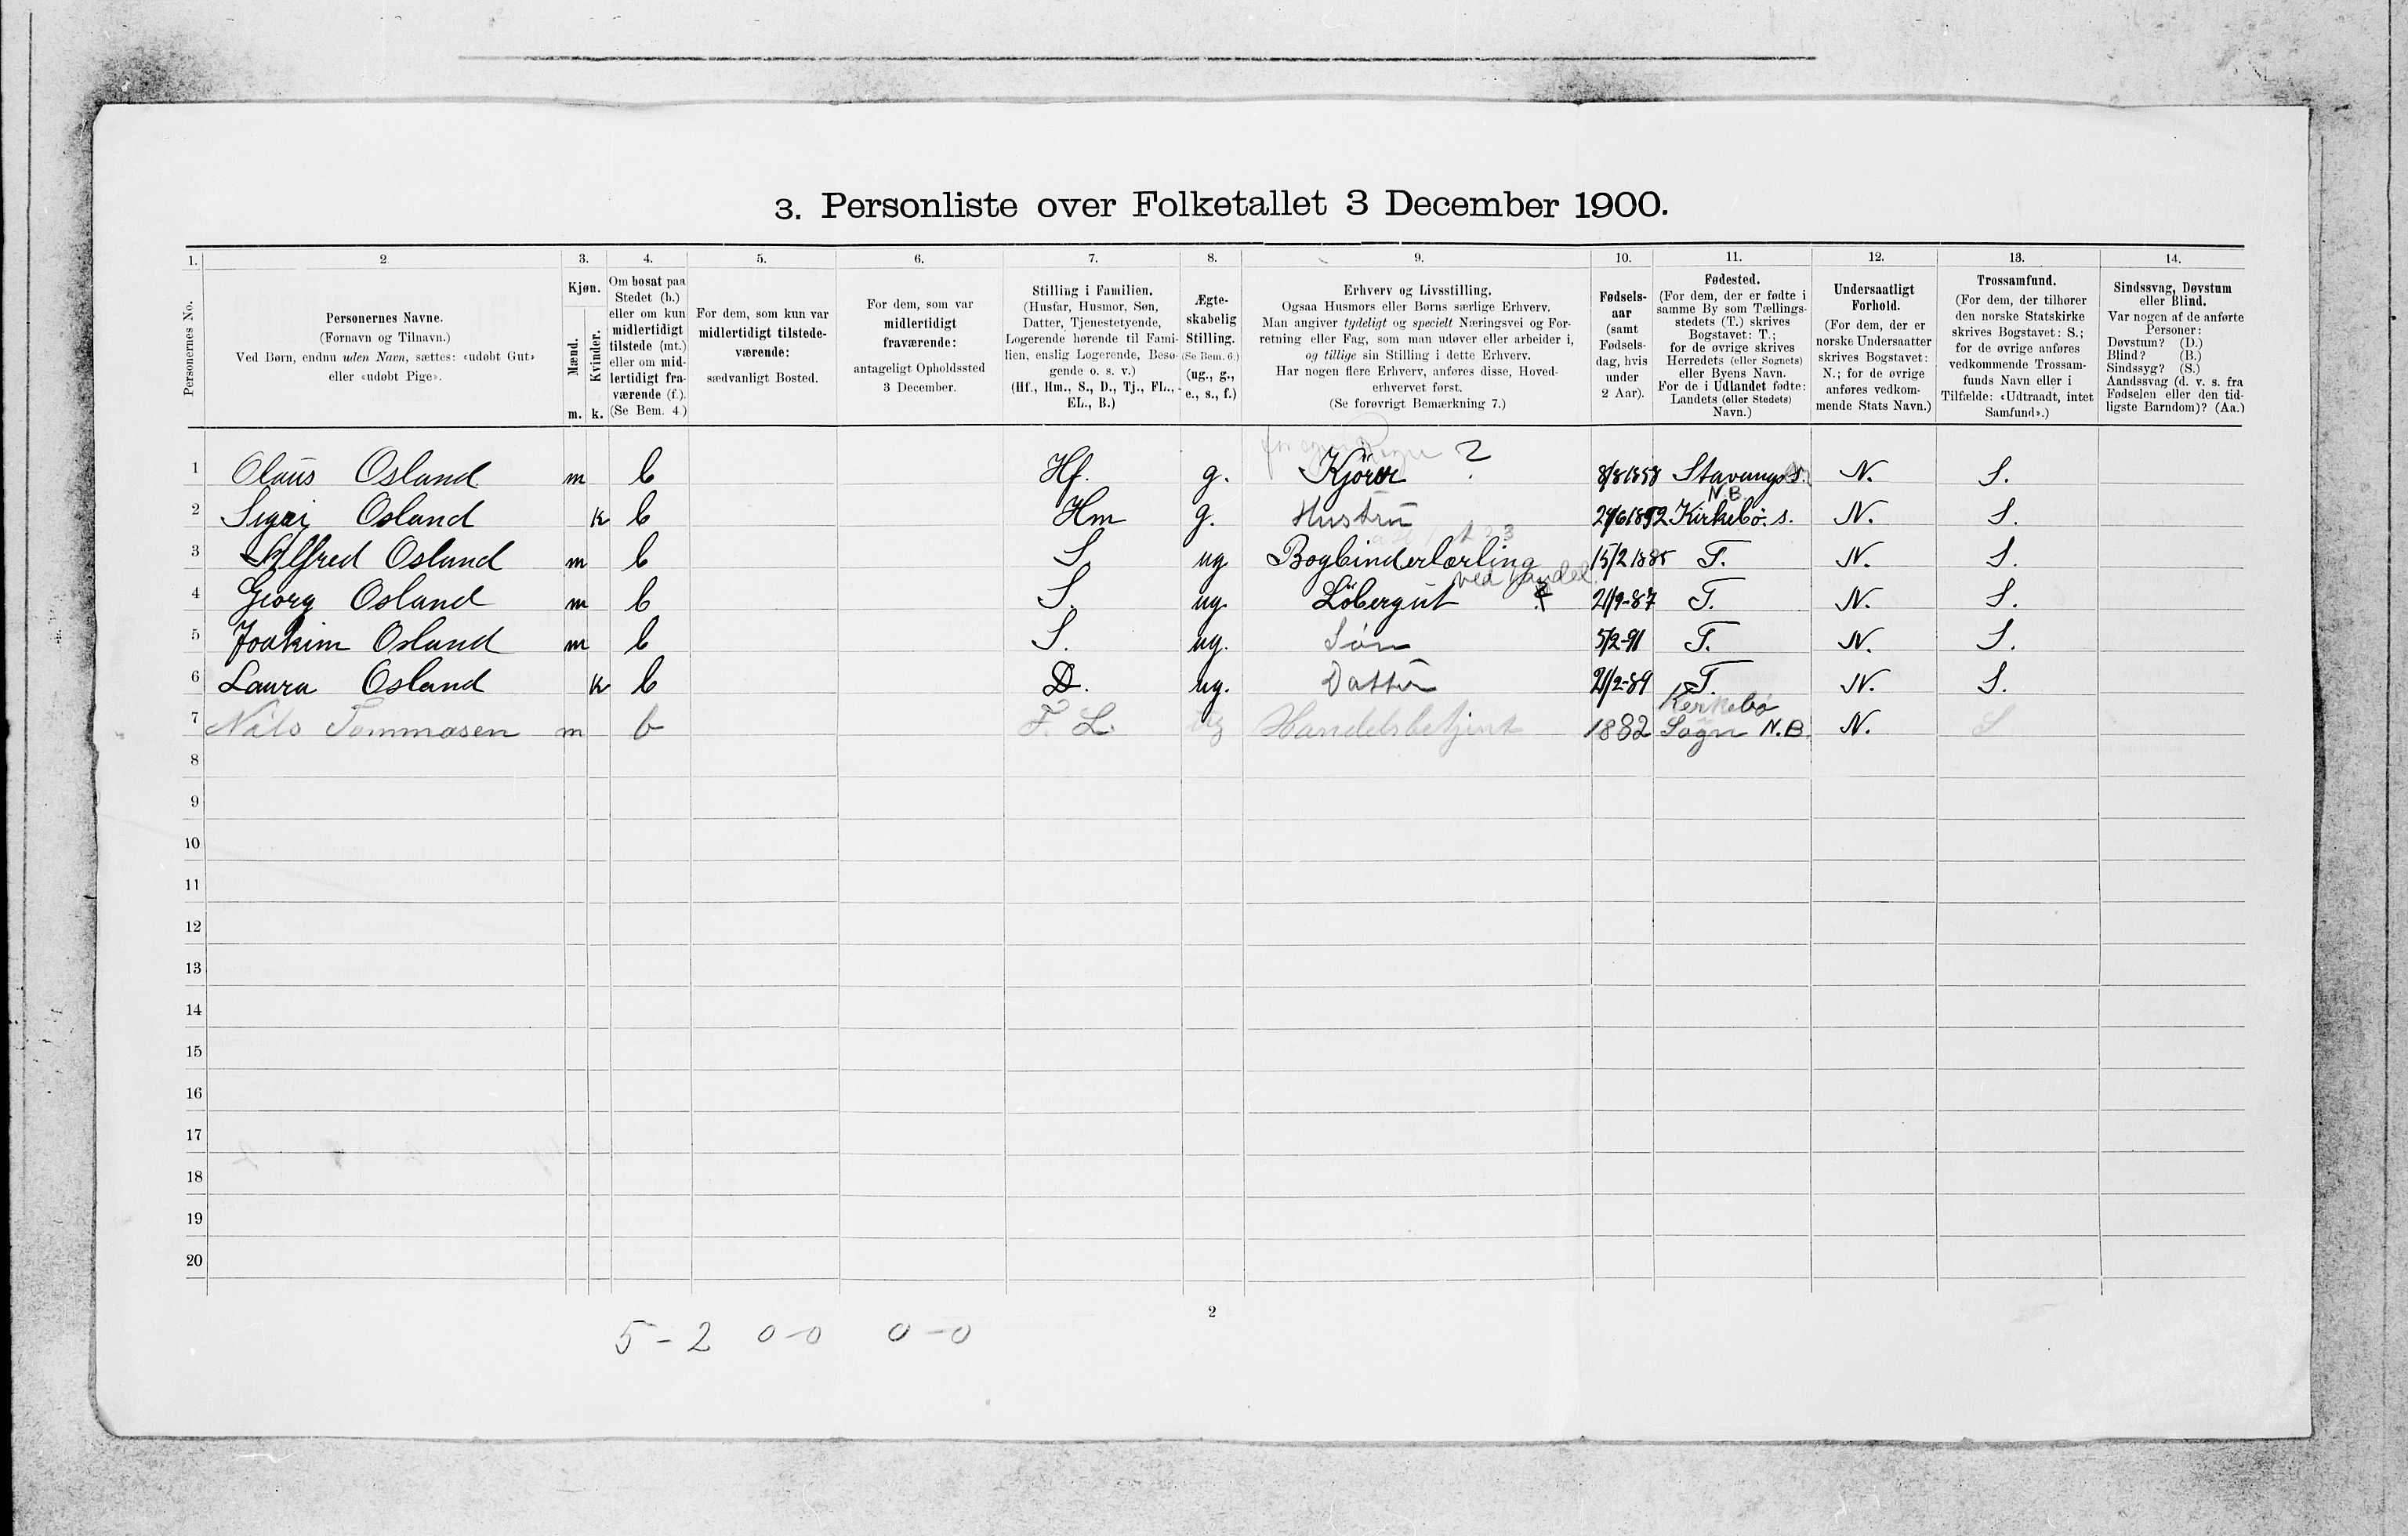 3. Personliste over Folketallet 3 December 1900.
1. 2 3. 4. 5. 6. 7. 8. 9. 10. 11. 12. 13. 14.
Personernes No.
Personernes Navne.
(Fornavn og Tilnavn.)
Ved Børn, endnu uden Navn, sættes: «udøbt Gut»
eller «udøbt Pige».
Kjøn.
Mænd.
Kvinder.
m. k.
Om bosat paa
Stedet (b.)
eller om kun
midlertidigt
tilstede (mt.)
eller om mid-
lertidigt fra-
værende (f.).
(Se Bem. 4.)
For dem, som kun var
midlertidigt tilstede-
værende:
sædvanligt Bosted.
For dem, som var
midlertidigt
fraværende:
antageligt Opholdssted
3 December.
Stilling i Familien.
(Husfar, Husmor, Søn,
Datter, Tjenestetyende,
Logerende hørende til Fami-
lien, enslig Logerende, Besø-
gende o. s. v.)
(Hf., Hm., S., D., Tj., FL.,
EL., B.)
Ægte-
skabelig
Stilling.
(Se Bem. 6.)
(ug., g.,
e., s., f.)
Erhverv og Livsstilling.
Ogsaa Husmors eller Børns særlige Erhverv.
Man angiver tydeligt og specielt Næringsvei og For-
retning eller Fag, som man udøver eller arbeider i,
og tillige sin Stilling i dette Erhverv.
Har nogen flere Erhverv, anføres disse, Hoved-
erhvervet først.
(Se forøvrigt Bemærkning 7.)
Fødsels-
aar
(samt
Fødsels-
dag, hvis
under
2 Aar).
Fødested.
(For dem, der er fødte i
samme By som Tællings-
stedets (T.) skrives
Bogstavet: T.;
for de øvrige skrives
Herredets (eller Sognets)
eller Byens Navn.
For de i Udlandet fødte:
Landets (eller Stedets)
Navn.)
Undersaatligt
Forhold.
(For dem, der er
norske Undersaatter
skrives Bogstavet:
N.; for de øvrige
anføres vedkom-
mende Stats Navn.)
Trossamfund.
(For dem, der tilhører
den norske Statskirke
skrives Bogstavet: S.;
for de øvrige anføres
vedkommende Trossam-
funds Navn eller i
Tilfælde: «Udtraadt, intet
Samfund».)
Sindssvag, Døvstum
eller Blind.
Var nogen af de anførte
Personer:
Døvstum? (D.)
Blind? (B.)
Sindssyg? (S.)
Aandssvag (d. v. s. fra
Fødselen eller den tid-
ligste Barndom)? (Aa.)
1 Olaüs Osland m b Hf. g. Kjörer 2 8/8 1858 Stavangs s. N. S.
N.B
2 Osland k b Hm g. Hustrü Kirkebö s. N. S.
3 Alfred Osland m b S. ug Bogbinderlærling 15/2 1885 T. N. S.
ved Handel
4 Georg Osland m b S. ug. Löbergüt 21/9-87 T. N. S.
5 Joakim Osland m b S. ug. Søn 5/2-91 T. N. S.
6 Laura Osland k b D. ug. Datter 21/2-89 T. N. S.
Kirkebø
7 Nils Tommasen m b F. L. ug Handelsbetjent 1882 Sogn N.B. N. S
8
9
10
11
12
13
14
15
16
17
18
19
20
2
5-2 0-0 0-0